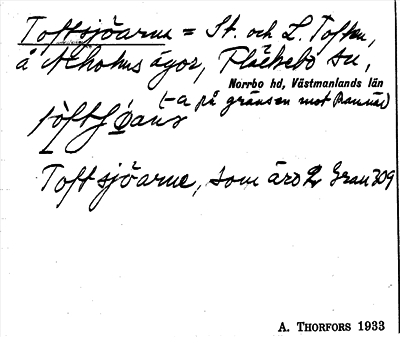 Toftsjöarne = St. och L. Toften,
å Alholms ägor, Fläckebo sn,
Norrbo hd, Västmanlands län
(-a på gränsen mot Ramnäs)
Toftsjöarne, som äro 2 Grau 309
A. THORFORS 1933